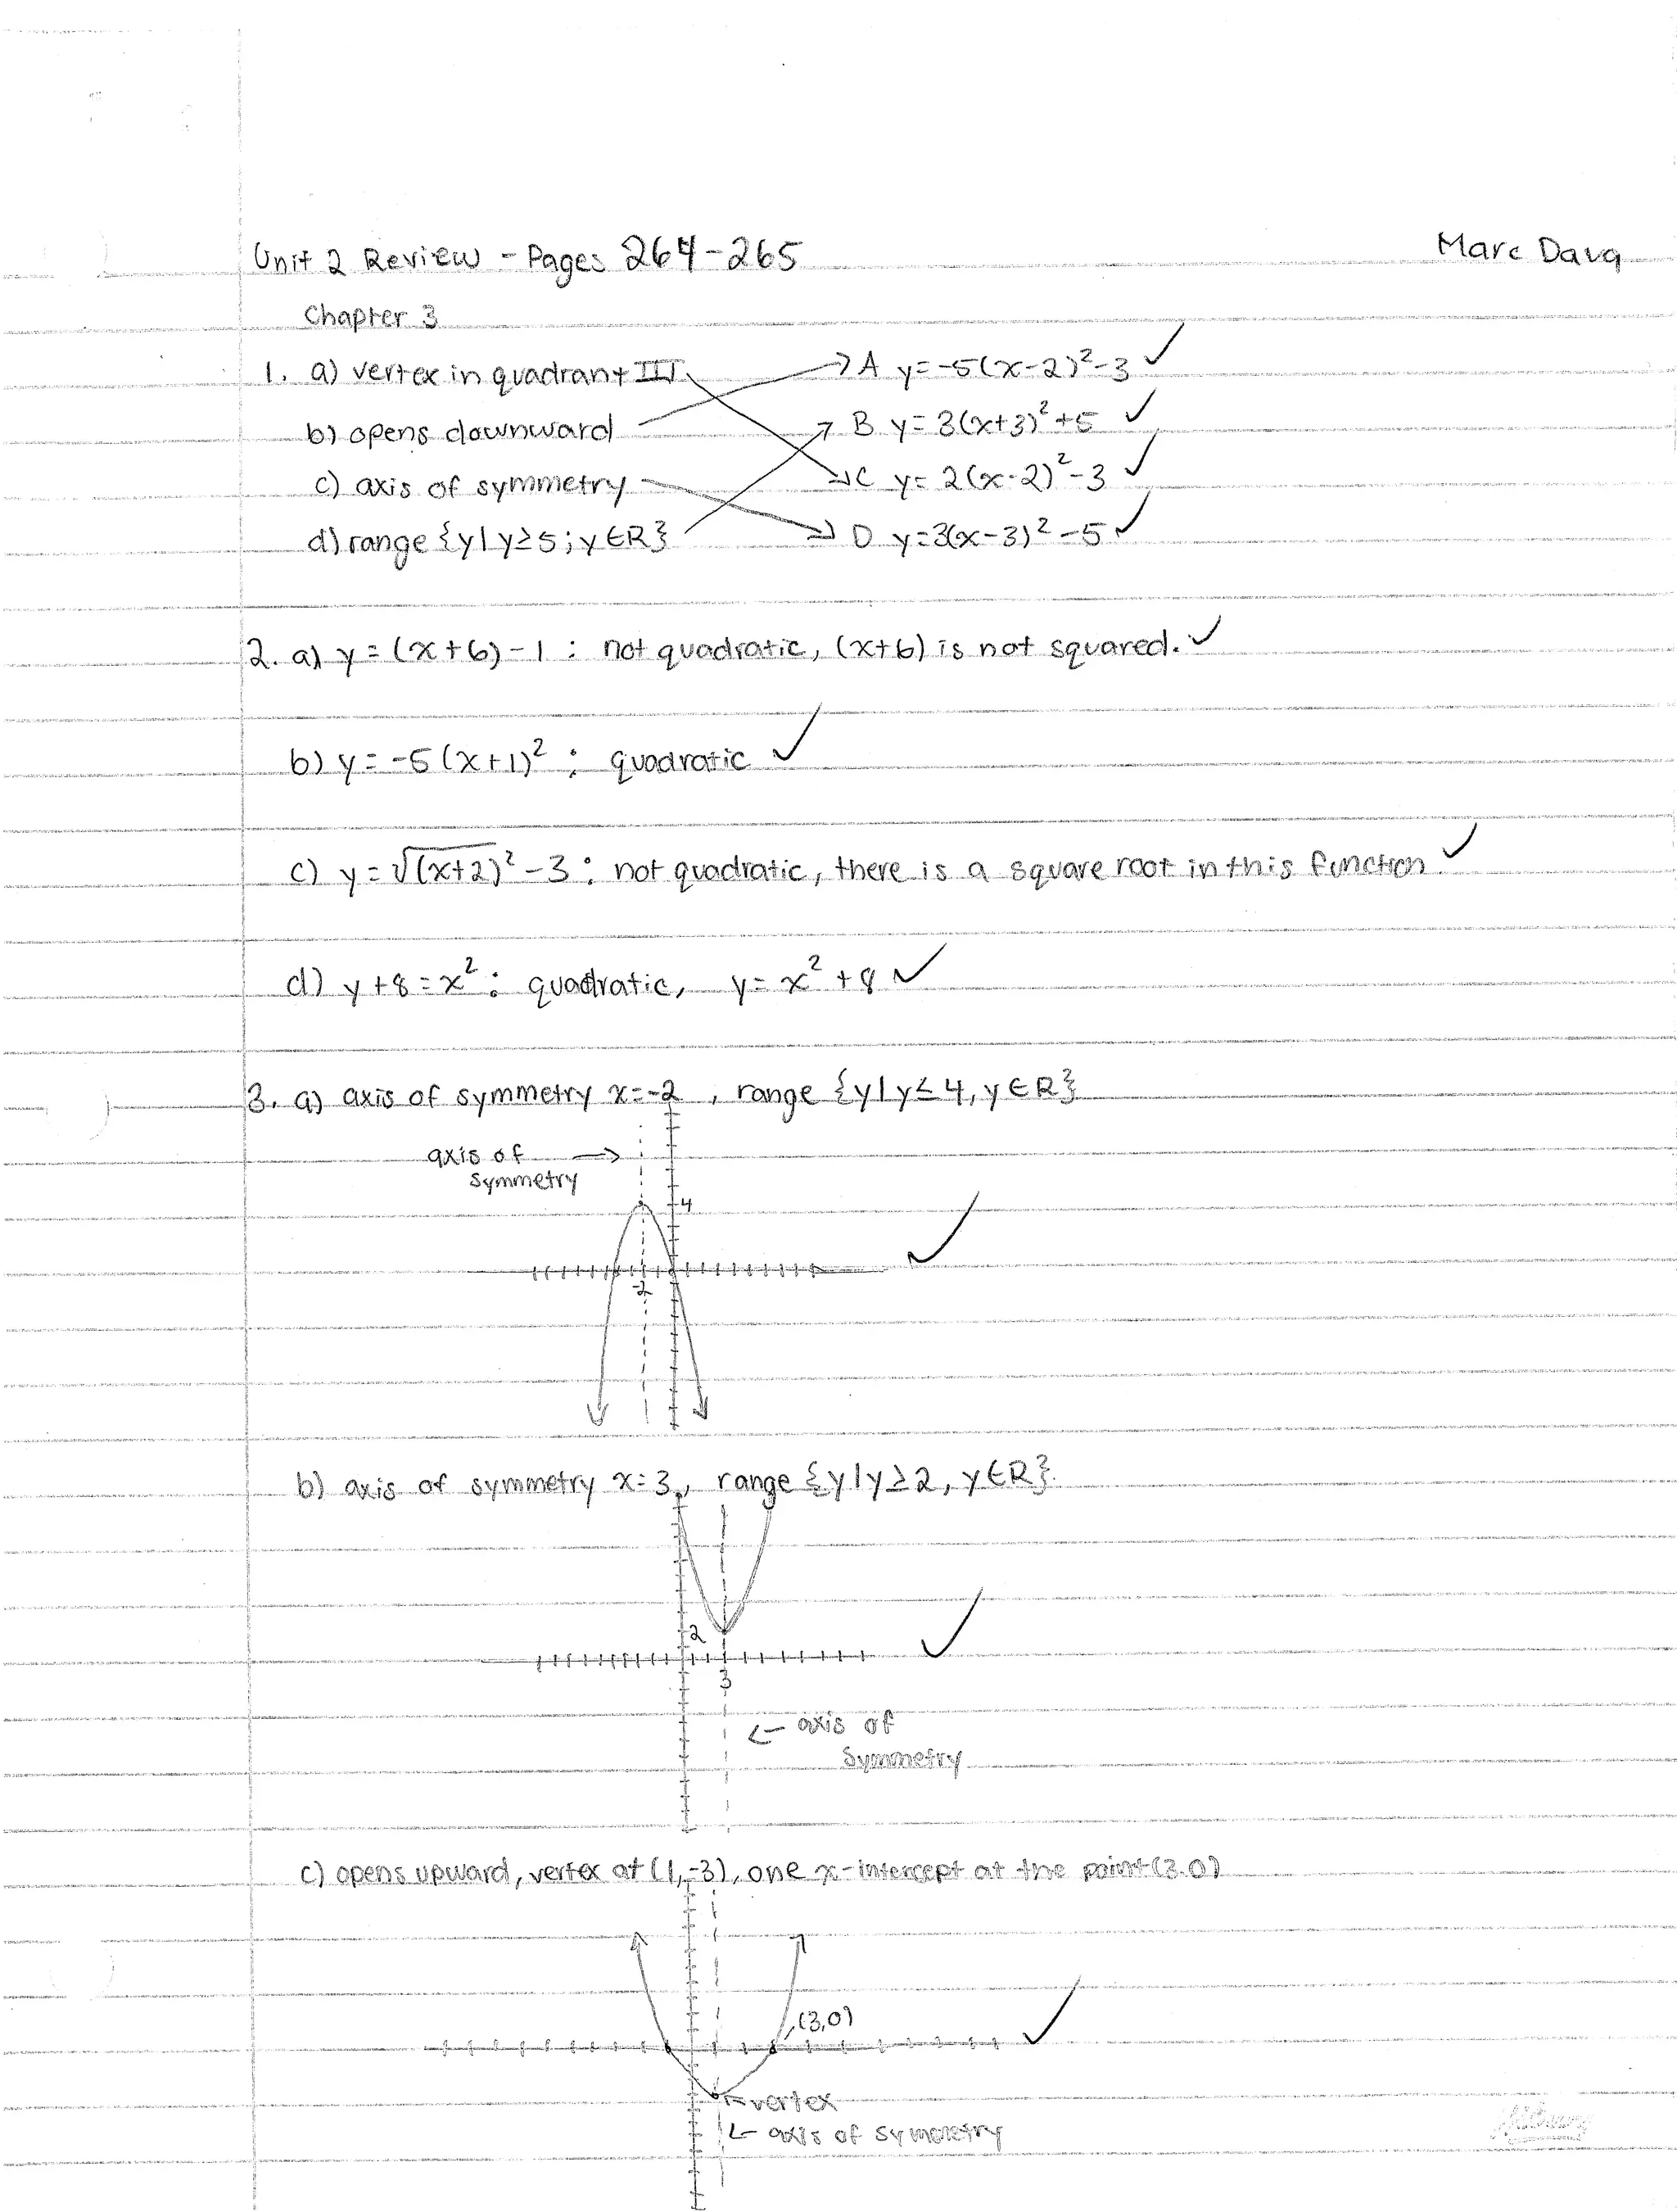 Unit 2 Review - Pages 264-265
Marc Dava
Chapter 3
1. a) vertex in quadrant III
A y=-5(x-2)²-3 ✓
b) opens downward
B y=3(x+3)²+5 ✓
c) axis of symmetry
C y=2(x-2)²-3 ✓
d) range {y|y≥5;y∈R}
D y=3(x-3)²-5 ✓
2. a) y=(x+6)-1 : not quadratic, (x+6) is not squared. ✓
b) y=-5(x+1)² : quadratic ✓
c) y=√(x+2)²-3 : not quadratic, there is a square root in this function. ✓
d) y+8=x² : quadratic, y=x²+8 ✓
3. a) axis of symmetry x=-2, range {y|y≤4, y∈R}
axis of →
symmetry
4
-2
✓
b) axis of symmetry x=3, range {y|y≥2, y∈R}.
2
3
✓
← axis of
symmetry
c) opens upward, vertex at (1,-3), one x-intercept at the point (3.0)
(3,0)
✓
← vertex
← axis of symmetry